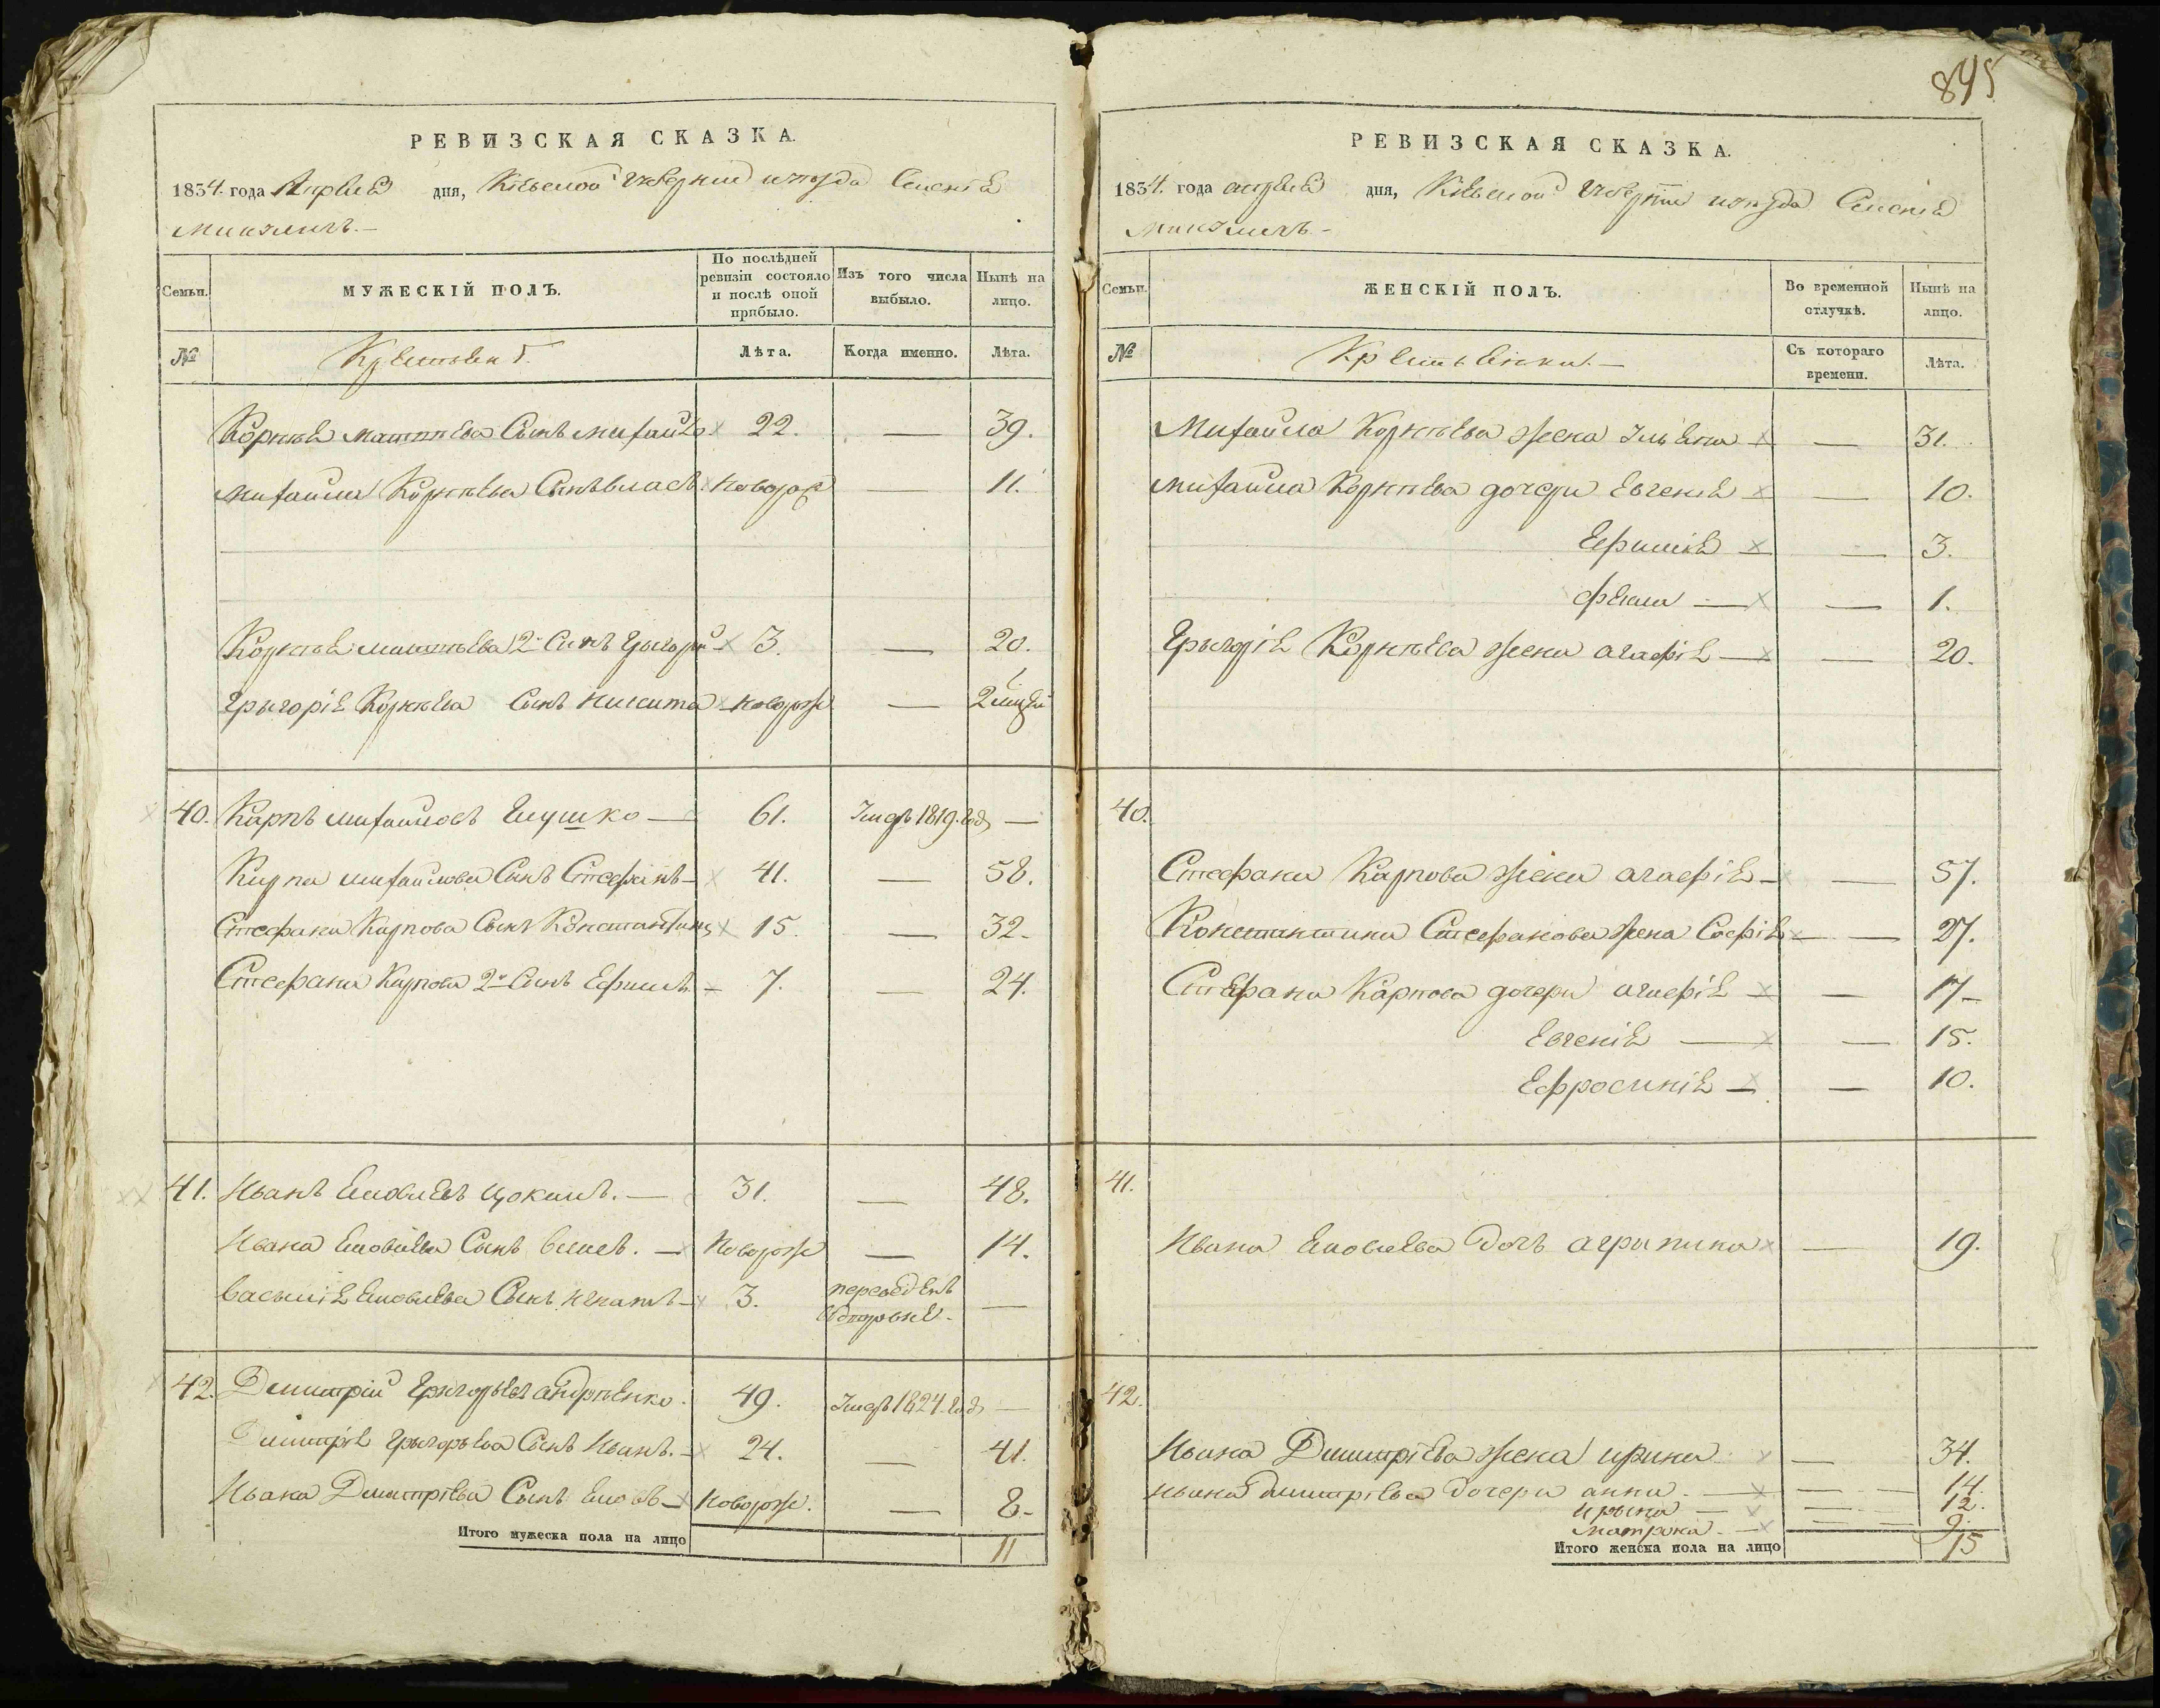 845
РЕВИЗСКАЯ СКАЗКА.
1834. года Апреля дня, Кіевской Губерніи и уезда Селенія
Микуличъ.—
Семьи.
МУЖЕСКІЙ ПОЛЪ.
По послѣдней ревизіи состояло и послѣ оной прибыло.
Изъ того числа выбыло.
Нынѣ на лицо.
№
Крестьянъ.
Лѣта.
Когда именно.
Лѣта.
Корнея Матвѣева Сынъ Михайло 22. — 39.
Михаила Корнѣева Сынъ Власъ новорож — 11.
Корнѣя Матвѣева 2й Сынъ Григорій 3. — 20.
Григорія Корнѣева Сынъ Никита новорож — 2
40. Карпъ Михайловъ 61. 1819. года —
Карпа Михайлова Сынъ Стефанъ — 41. — 58.
Стефана Карпова Сынъ Константинъ 15. — 32.
Стефана Карпова 2й Сынъ Ефимъ — 7. — 24.
41. Иванъ 31. — 48.
Ивана Сынъ — Новорож — 14.
Василія Сынъ Игнатъ — 3. переведенъ —
42. Димитрій Григорьевъ Андрѣенко. 49. 1824. года —
Димитрія Григорьева Сынъ Иванъ. — 24. — 41.
Ивана Димитріева Сынъ — Новорож. — 8 -
Итого мужеска пола на лицо 11
РЕВИЗСКАЯ СКАЗКА.
1834. года апреля дня, Кіевской Губерніи и уезда Селенія
Микуличъ.—
Семьи.
ЖЕНСКІЙ ПОЛЪ.
Во временной отлучкѣ.
Нынѣ на лицо.
№
Крестьянки.—
Съ котораго времени.
Лѣта.
Михаила Корнѣева жена — — 31.
Михаила Корнѣева дочери Евгенія — 10.
— 3.
Фекла — — 1.
Григорія Корнѣева жена агафія — — 20.
40.
Стефана Карпова жена агафія — — 57.
Константина Стефанова жена Софія — — 27.
Стефана Карпова дочери агафія — — 17 -
Евгенія — — 15.
Ефросинія — — 10.
41.
Ивана дочь агрипина — 19.
42.
Ивана Димитріева жена ирина — 34.
Ивана Димитріева дочери анна. — — 14.
ирина — — 12.
матрона. — — 9.
Итого женска пола на лицо 15